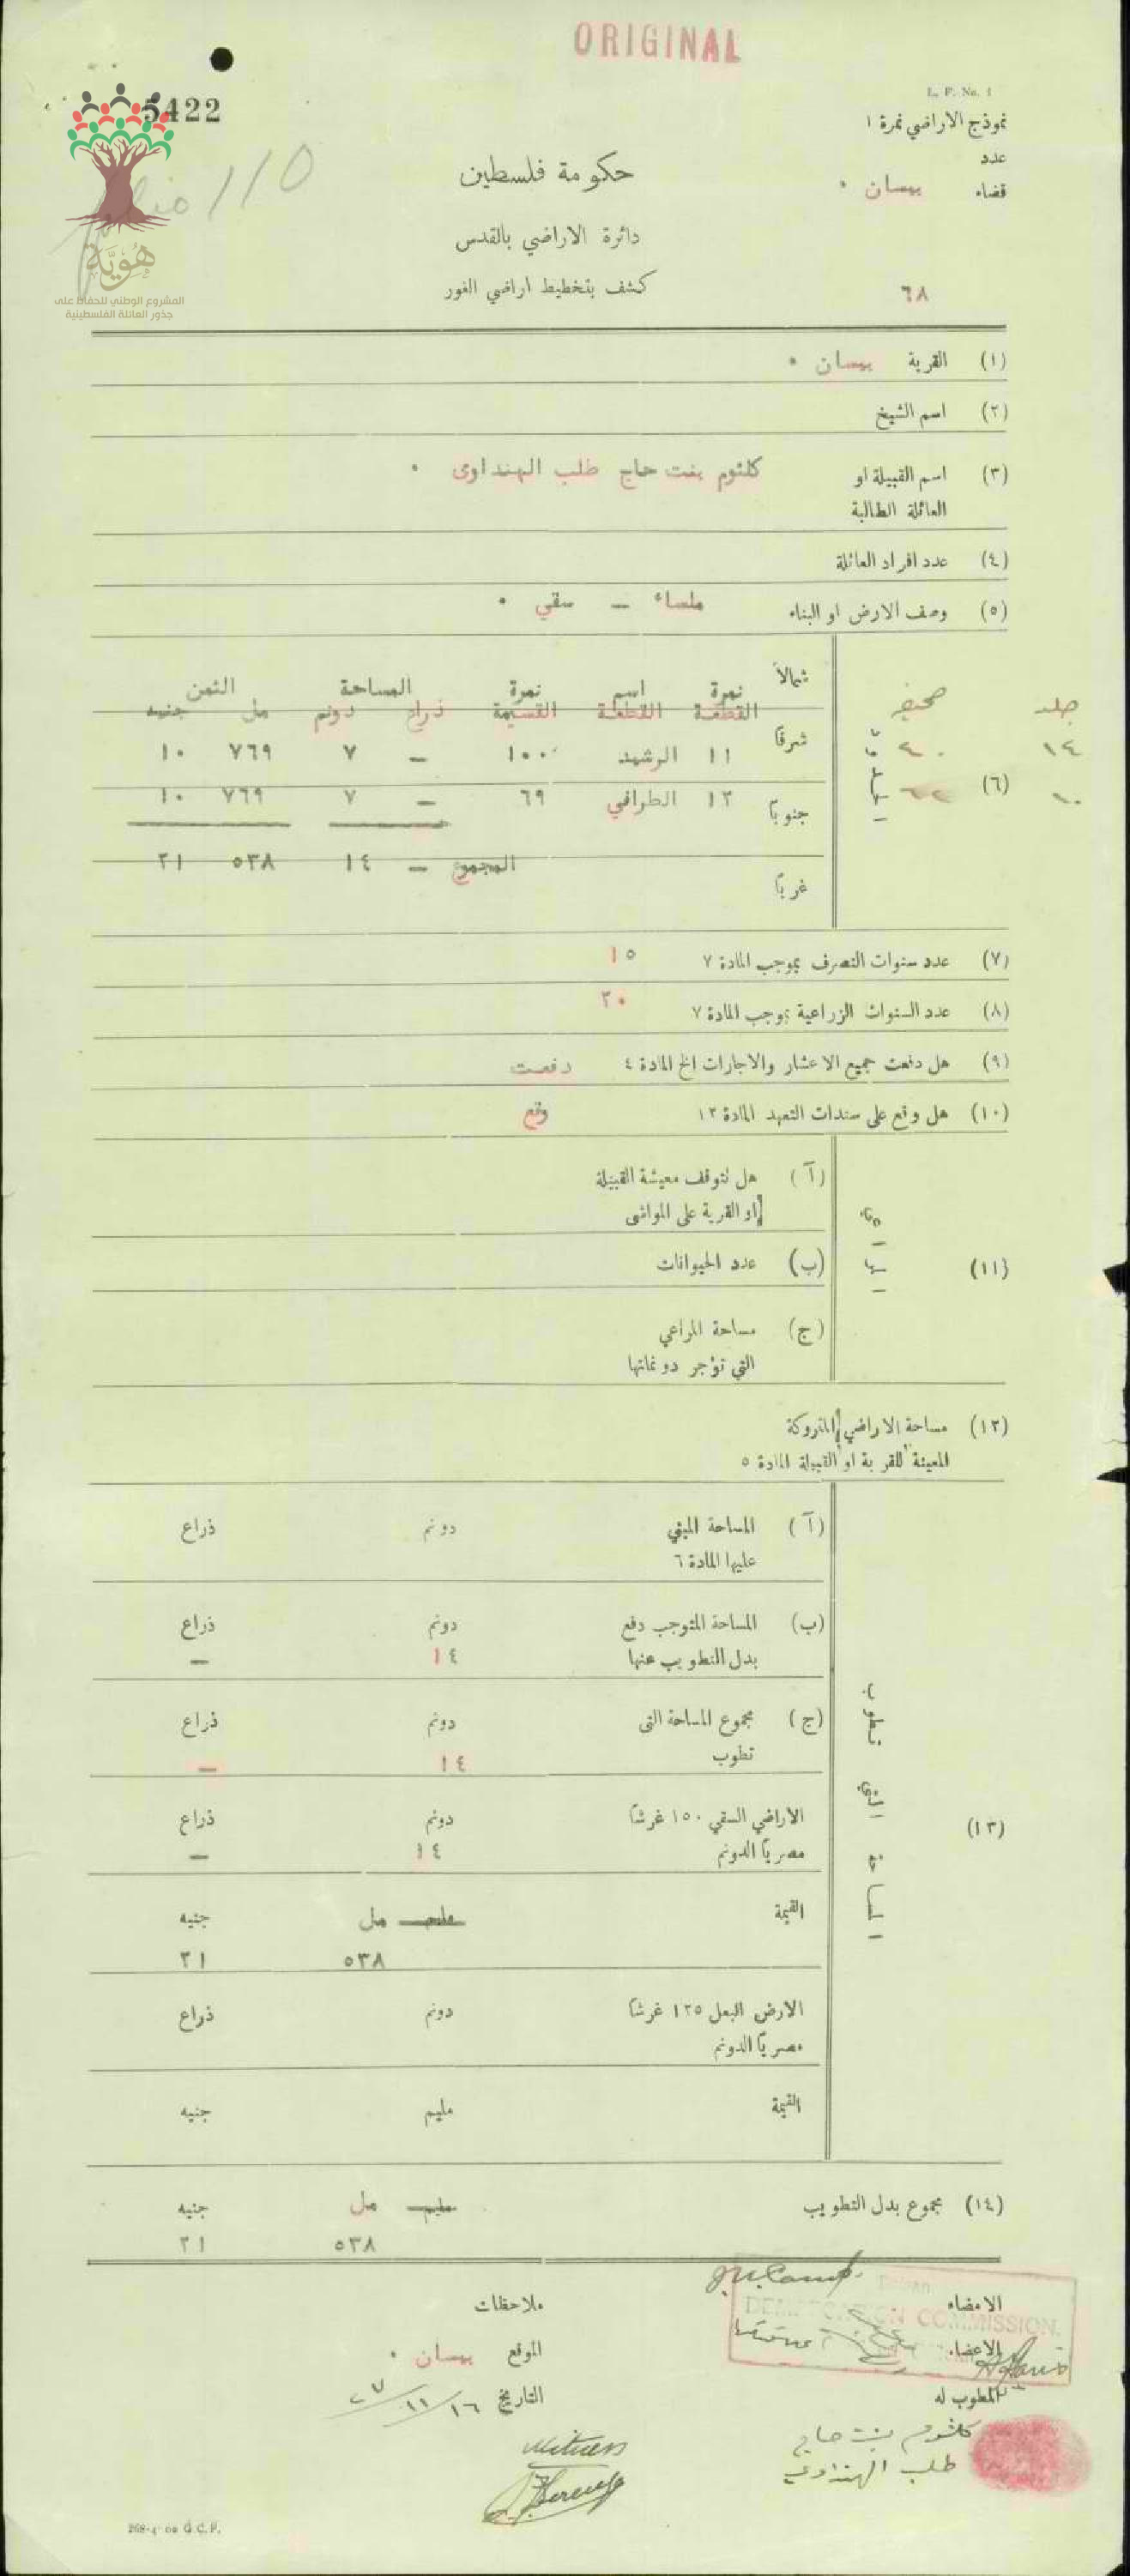 ORIGINAL
L. P. No. 1
5422
نموذج الاراضي نمرة ١
عدد
حكومة فلسطين
قضاء بيسان ٠
folio 110
دائرة الاراضي بالقدس
هُويَّة
كشف بتخطيط اراضي الغور
٦٨
المشروع الوطني للحفاظ على
جذور العائلة الفلسطينية
(١) القرية بيسان ٠
(٢) اسم الشيخ
(٣) اسم القبيلة او كلثوم بنت حاج طلب الهنداوى ٠
العائلة الطالبة
(٤) عدد افراد العائلة
(٥) وصف الارض او البناء ملساء — سقي ٠
شمالاً نمرة اسم نمرة المساحة الثمن
القطعة القطعة القسيمة ذراع دونم مل جنيه
جلد صحيفة
شرقاً ١١ الرشيد ١٠٠ — ٧ ٧٦٩ ١٠
١٤ ٤٠
(٦) جنوباً ١٢ الطوافي ٦٩ — ٧ ٧٦٩ ١٠
١٠
المجموع — ١٤ ٥٣٨ ٢١
غرباً
(٧) عدد سنوات التصرف بموجب المادة ٧ ١٥
(٨) عدد السنوات الزراعية بموجب المادة ٧ ٢٠
(٩) هل دفعت جميع الاعشار والاجارات الخ المادة ٤ دفعت
(١٠) هل وقع على سندات التعهد المادة ١٢ وقع
(١١)
(آ) هل تتوقف معيشة القبيلة
او القرية على المواشى
(ب) عدد الحيوانات
(ج) مساحة المراعي
التي تؤجر دونماتها
(١٢) مساحة الاراضي المتروكة
المعينة للقرية او القبيلة المادة ٥
(١٣) المساحة التي تطوب
(آ) المساحة المبني دونم ذراع
عليها المادة ٦
(ب) المساحة المتوجب دفع دونم ذراع
بدل التطويب عنها ١٤ —
(ج) مجموع المساحة التى دونم ذراع
تطوب ١٤ —
الاراضي السقي ١٥٠ غرشاً دونم ذراع
مصرياً الدونم ١٤ —
القيمة مليم مل جنيه
٥٣٨ ٢١
الارض البعل ١٢٥ غرشاً دونم ذراع
مصرياً الدونم
القيمة مليم جنيه
(١٤) مجموع بدل التطويب مليم مل جنيه
٥٣٨ ٢١
الامضاء ملاحظات
DEMARCATION COMMISSION.
الاعضاء الموقع بيسان ٠
المطوب له التاريخ ١٦/١١/٢٧
كلثوم بنت حاج
طلب الهنداوي
Witness
268-4-00 G.C.P.